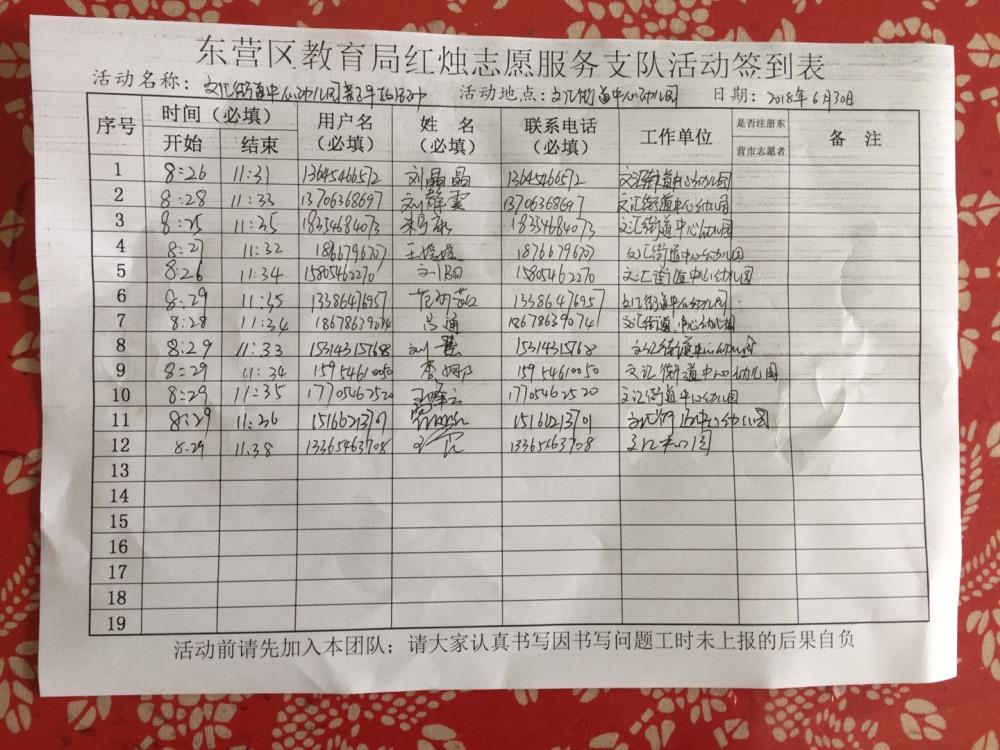 东营区教育局红烛志愿服务支队活动签到表
活动名称：文汇街道中心幼儿园 活动地点：文汇街道中心幼儿园 日期：2018年6月30日
序号 时间（必填） 用户名（必填） 姓 名（必填） 联系电话（必填） 工作单位 是否注册东营市志愿者 备 注
开始 结束
1 8:26 11:31 13645466512 刘晶晶 13645466512 文汇街道中心幼儿园
2 8:28 11:33 13706368697 刘静雯 13706368697 文汇街道中心幼儿园
3 8:25 11:35 18354684073 18354684073 文汇街道中心幼儿园
4 8:27 11:32 18667796707 王媛媛 18766796707 文汇街道中心幼儿园
5 8:26 11:34 15805462270 15805462270 文汇街道中心幼儿园
6 8:29 11:35 13386476957 13386476957 文汇街道中心幼儿园
7 8:28 11:34 吕通 18678639074 文汇街道中心幼儿园
8 8:29 11:33 15314315768 15314315768 文汇街道中心幼儿园
9 8:29 11:34 15954610050 李娜 15954610050 文汇街道中心幼儿园
10 8:29 11:35 17705462520 17705462520 文汇街道中心幼儿园
11 8:29 11:36 15166213701 15166213701
12 8.29 11.38 13365463708 13365463708
13
14
15
16
17
18
19
活动前请先加入本团队；请大家认真书写因书写问题工时未上报的后果自负